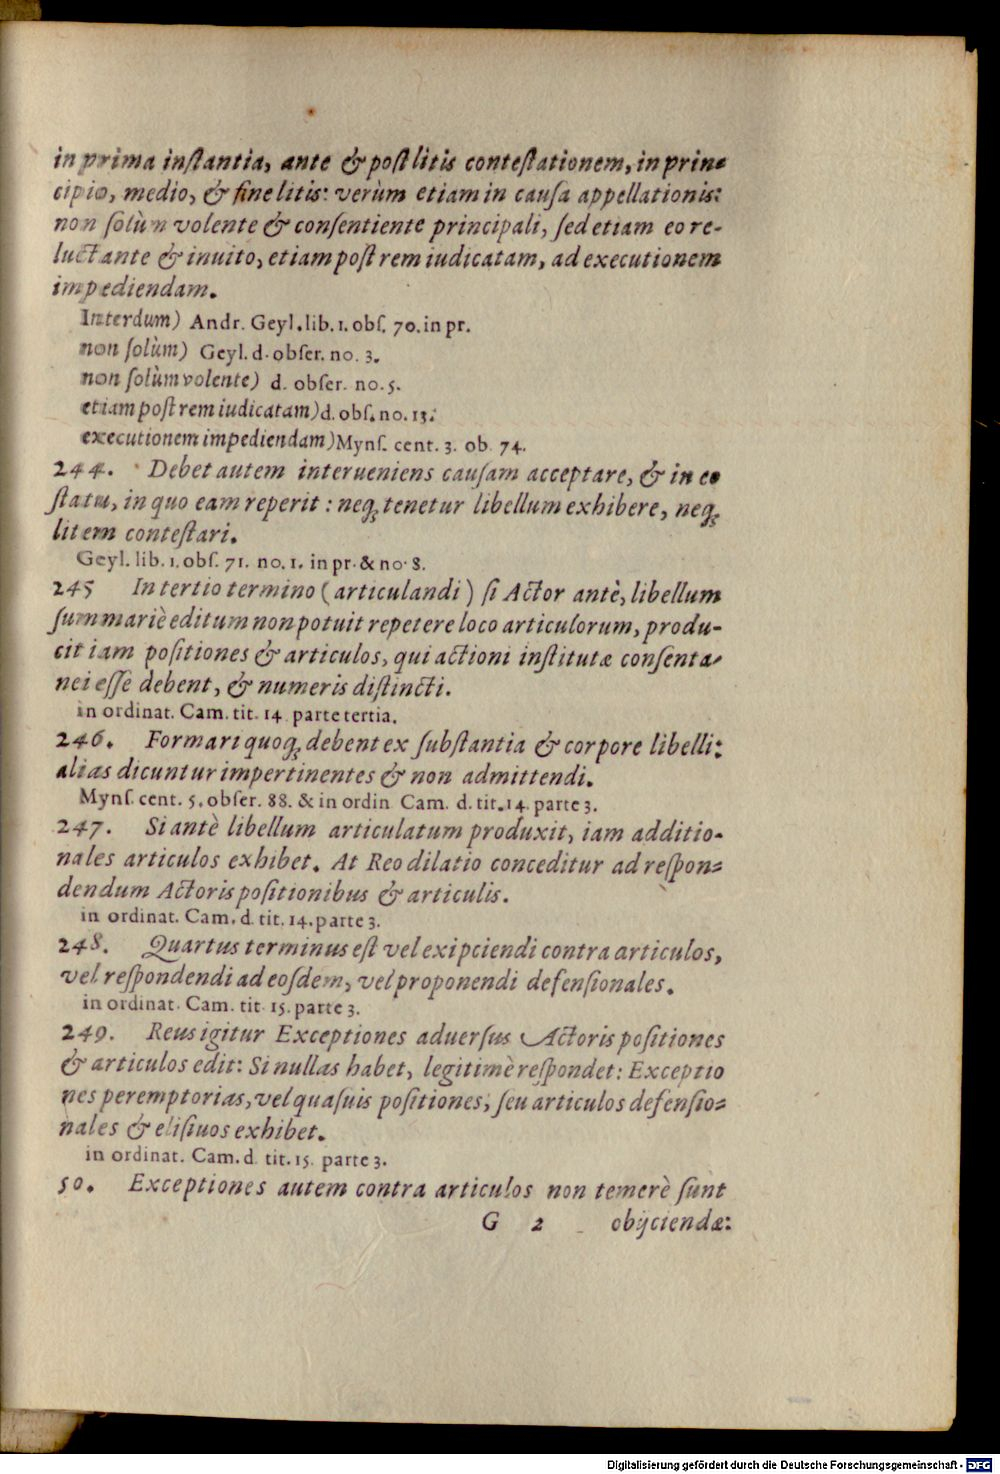 in prima inſtantia, ante & poſt litis conteſtationem, in prin-
cipio, medio, & fine litis: verùm etiam in cauſa appellationis:
non ſolùm volente & conſentiente principali, ſed etiam eo re-
luctante & inuito, etiam poſt rem iudicatam, ad executionem
impediendam.
Interdum) Andr. Geyl. lib. 1. obſ. 70. in pr.
non ſolùm) Geyl. d. obſer. no. 3.
non ſolùm volente) d. obſer. no. 5.
etiam poſt rem iudicatam) d. obſ. no. 13.
executionem impediendam) Mynſ. cent. 3. ob. 74.
244. Debet autem interueniens cauſam acceptare, & in eo
ſtatu, in quo eam reperit: neq; tenetur libellum exhibere, neq;
litem conteſtari.
Geyl. lib. 1. obſ. 71. no. 1. in pr. & no. 8.
245 In tertio termino (articulandi) ſi Actor antè, libellum
ſummariè editum non potuit repetere loco articulorum, produ-
cit iam poſitiones & articulos, qui actioni inſtitutæ conſenta-
nei eſſe debent, & numeris diſtincti.
in ordinat. Cam. tit. 14. parte tertia.
246. Formari quoq; debent ex ſubſtantia & corpore libelli:
alias dicuntur impertinentes & non admittendi.
Mynſ. cent. 5. obſer. 88. & in ordin. Cam. d. tit. 14. parte 3.
247. Si antè libellum articulatum produxit, iam additio-
nales articulos exhibet. At Reo dilatio conceditur ad reſpon-
dendum Actoris poſitionibus & articulis.
in ordinat. Cam. d. tit. 14. parte 3.
248. Quartus terminus eſt vel exipciendi contra articulos,
vel reſpondendi ad eoſdem, vel proponendi defenſionales.
in ordinat. Cam. tit. 15. parte 3.
249. Reus igitur Exceptiones aduerſus Actoris poſitiones
& articulos edit: Si nullas habet, legitimè reſpondet: Exceptio
nes peremptorias, vel quaſuis poſitiones, ſeu articulos defenſio-
nales & eliſiuos exhibet.
in ordinat. Cam. d. tit. 15. parte 3.
50. Exceptiones autem contra articulos non temerè ſunt
G 2 obijciendæ:
Digitalisierung gefördert durch die Deutsche Forschungsgemeinschaft - DFG